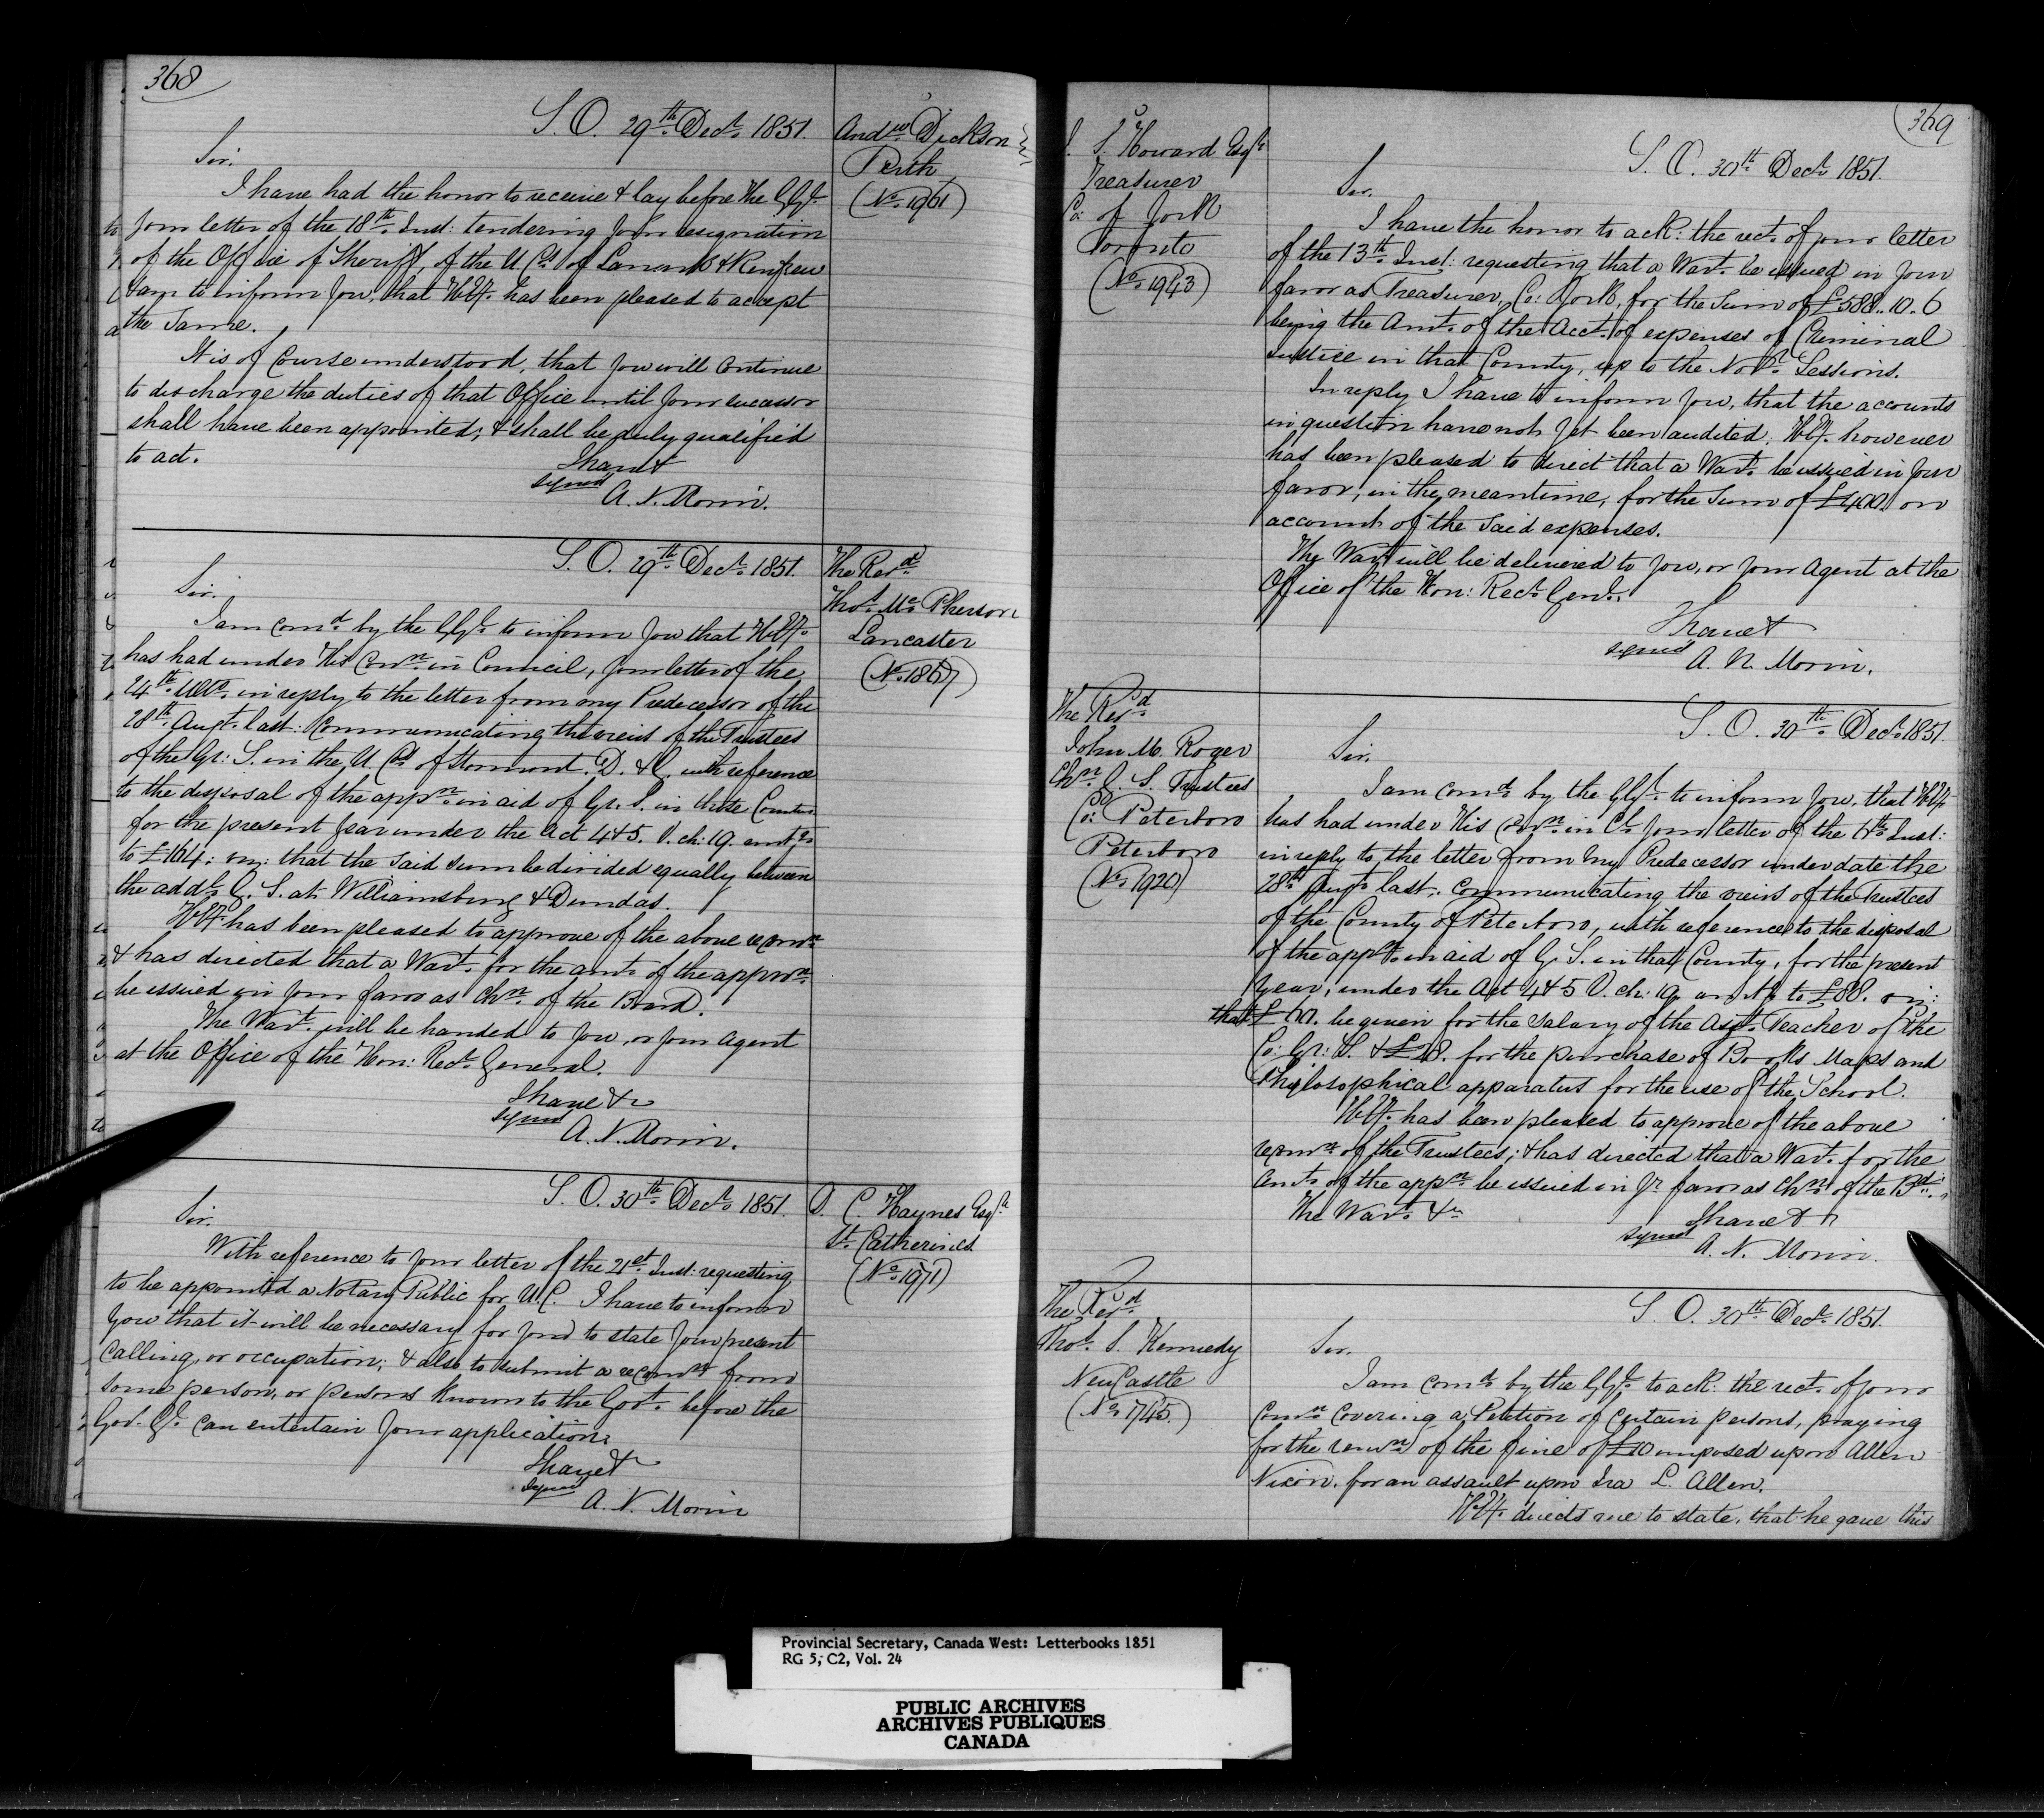 368
S. O. 29th Decr. 1851.
Andw. Dickson
Perth
(No. 1961)
Sir.
I have had the honor to receive & lay before the G.Gl.
your letter of the 18th. Inst: tendering your resignation
of the Office of Sheriff, of the U Cs. of Lanark & Renfrew
I am to inform you, that H.Ex. has been pleased to accept
the same.
It is of course understood, that you will continue
to discharge the duties of that Office until your successor
shall have been appointed; & shall be duly qualified
to act.
I have &
signed
A. N. Morin.
S. O. 29th. Decr. 1851.
The Revd.
Thos. Mc. Pherson
Lancaster
(No. 1867)
Sir.
I am comd. by the G.Gl. to inform you that H.Ex.
has had under His Conn. in Council, your letter of the
24th. Ulto. in reply to the letter from my Predecessor of the
28th. Augt. last: communicating the views of the Trustees
of the Gr: S. in the U. Cs. of Stormont. D. & G. with reference
to the disposal of the appn. in aid of Gr. S. in those Counties
for the present year under the Act 4 & 5. V. ch: 19. amtg.
to £164: viz: that the said sum be divided equally between
the addl. G. S. at Williamsburg & Dundas.
H.Ex. has been pleased to approve of the above recomn.
& has directed that a Wart. for the amt. of the appron.
be issued in your favor as Chn. of the Board.
The Wart. will be handed to you, or your Agent
at the Office of the Hon: Recr. General.
I have &c
signed
A. N. Morin.
S. O. 30th Decr. 1851.
D. C. Haynes Esqr.
St. Catherines
(No. 1971)
Sir.
With reference to your letter of the 21st. Inst: requesting
to be appointed a Notary Public for U.C. I have to inform
you that it will be necessary for you to state your present
calling, or occupation; & also to submit a recomn. from
some person, or persons known to the Govt. before the
Gov. Gl. can entertain your application.
I have &c
signed
A. N. Morin
369
J. S. Howard Esqr.
Treasurer
Co: of York
Toronto
(No. 1943)
S. O. 30th Decr. 1851.
Sir.
I have the honor to ack: the rect. of your letter
of the 13th. Inst: requesting that a Wart. be issued in your
favor as Treasurer, Co: York, for the Sum of £588..10.6
being the Amt. of the Acct. of expenses of Criminal
Justice in that County, up to the Novr. Sessions.
In reply I have to inform you, that the accounts
in question have not yet been audited. H.Ex. however
has been pleased to direct that a Wart. be issued in your
favor, in the meantime, for the Sum of £400. on
account of the said expenses.
The Wart. will be delivered to you, or your Agent at the
Office of the Hon: Recr. Genl.
I have &
signed
A. N. Morin.
The Revd.
John M. Roger
Chn. G. S. Trustees
Co: Peterboro
Peterboro
(No. 1920)
S. O. 30th. Decr. 1851.
Sir.
I am comd. by the G.Gl. to inform you, that H.Ex.
has had under His Conn. in Cl. your letter of the 6th. Inst:
in reply to the letter from my Predecessor under date the
28th. Augt. last. communicating the views of the Trustees
of the County of Peterboro, with reference to the disposal
of the appn. in aid of G. S. in that County, for the present
year, under the Act 4 & 5 V. ch: 19. amtg. to £88. viz:
that £60. be given for the salary of the Asst. Teacher of the
Co: Gr: S. & £28. for the purchase of Books Maps and
Philosophical apparatus for the use of the School.
H.Ex. has been pleased to approve of the above
recomn. of the Trustees; & has directed that a Wart. for the
Amt. of the appn. be issued in yr. favor as Chn. of the Bd.
The Wart. &c
I have &c
signed
A. N. Morin.
The Revd.
Thos. S. Kennedy
New Castle
(No. 1745.)
S. O. 30th Decr. 1851.
Sir.
I am comd. by the G.Gl. to ack: the rect. of your
comn. covering a Petition of certain persons, praying
for the remn. of the fine of £10 imposed upon Allen
Nixon. for an assault upon Ira L. Allen.
H.Ex. directs me to state, that he gave this
Provincial Secretary, Canada West: Letterbooks 1851
RG 5, C2, Vol. 24
PUBLIC ARCHIVES
ARCHIVES PUBLIQUES
CANADA